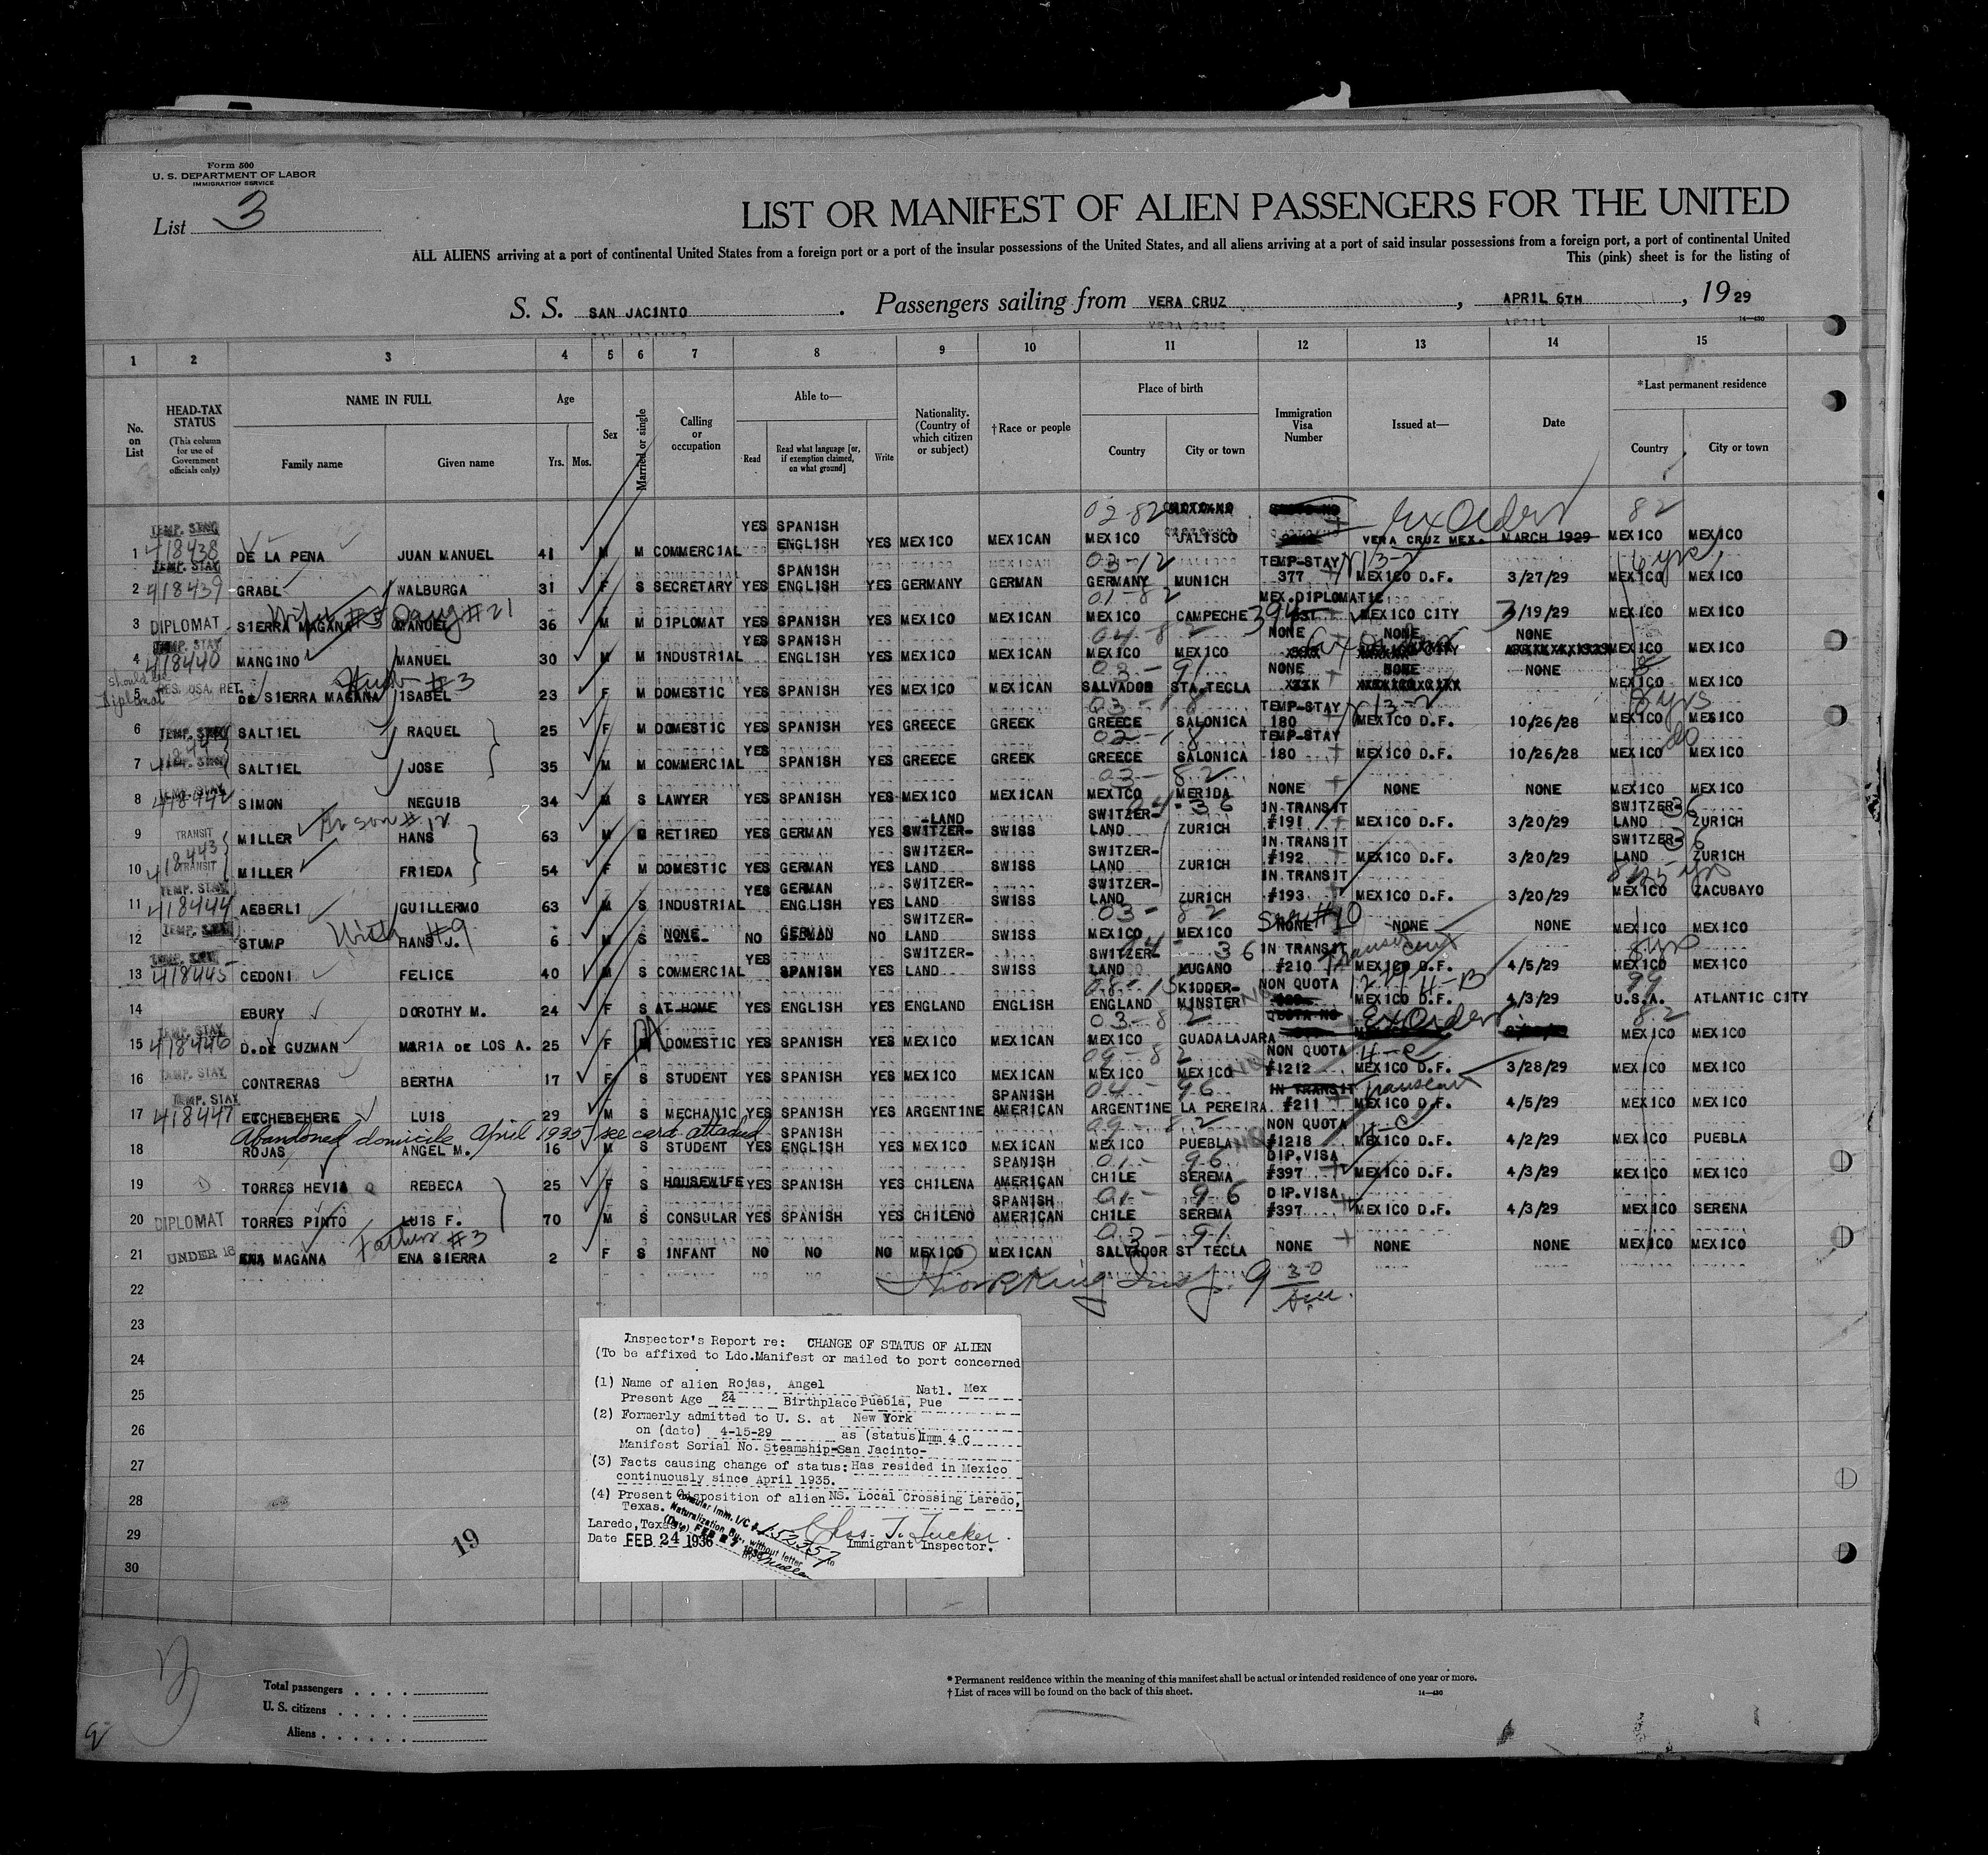 Form 500
U. S. DEPARTMENT OF LABOR
IMMIGRATION SERVICE
List 3
LIST OR MANIFEST OF ALIEN PASSENGERS FOR THE UNITED
ALL ALIENS arriving at a port of continental United States from a foreign port or a port of the insular possessions of the United States, and all aliens arriving at a port of said insular possessions from a foreign port, a port of continental United
This (pink) sheet is for the listing of
S. S. SAN JACINTO. Passengers sailing from VERA CRUZ, APRIL 6TH, 1929
14—430
1 2 3 4 5 6 7 8 9 10 11 12 13 14 15
No. on List
HEAD-TAX STATUS (This column for use of Government officials only)
NAME IN FULL Family name Given name
Age Yrs. Mos.
Sex
Married or single
Calling or occupation
Able to— Read Read what language [or, if exemption claimed, on what ground] Write
Nationality. (Country of which citizen or subject)
†Race or people
Place of birth Country City or town
Immigration Visa Number
Issued at—
Date
*Last permanent residence Country City or town
02-82 Ex Order 82
1 TEMP. STAY 418438 DE LA PENA JUAN MANUEL 41 M M COMMERCIAL YES SPANISH ENGLISH YES MEXICO MEXICAN MEXICO JALISCO VERA CRUZ MEX. MARCH 1929 MEXICO MEXICO
03-12
2 TEMP. STAY 418439 GRABL WALBURGA 31 F S SECRETARY YES SPANISH ENGLISH YES GERMANY GERMAN GERMANY MUNICH TEMP-STAY 377 MEXICO D.F. 3/27/29 MEXICO MEXICO
Wife #5 Daug #21 01-82
3 DIPLOMAT SIERRA MAGANA MANUEL 36 M M DIPLOMAT YES SPANISH YES MEXICO MEXICAN MEXICO CAMPECHE MEX.DIPLOMATIC MEXICO CITY 3/19/29 MEXICO MEXICO
04-82
4 TEMP. STAY 418440 MANGINO MANUEL 30 M M INDUSTRIAL YES SPANISH ENGLISH YES MEXICO MEXICAN MEXICO MEXICO NONE NONE NONE MEXICO MEXICO
should be Diplomat Husb #3 03-91
5 DE SIERRA MAGANA ISABEL 23 F M DOMESTIC YES SPANISH YES MEXICO MEXICAN SALVADOR STA.TECLA NONE NONE NONE MEXICO MEXICO
03-18 8 yrs
6 TEMP. STAY SALTIEL RAQUEL 25 F M DOMESTIC YES SPANISH YES GREECE GREEK GREECE SALONICA TEMP-STAY 180 MEXICO D.F. 10/26/28 MEXICO MEXICO
02-18 do
7 TEMP. STAY SALTIEL JOSE 35 M M COMMERCIAL YES SPANISH YES GREECE GREEK GREECE SALONICA TEMP-STAY 180 MEXICO D.F. 10/26/28 MEXICO MEXICO
03-82
8 TEMP. STAY 418442 SIMON NEGUIB 34 M S LAWYER YES SPANISH YES MEXICO MEXICAN MEXICO MERIDA NONE NONE NONE MEXICO MEXICO
Gr son #12 04-36 36
9 TRANSIT MILLER HANS 63 M RETIRED YES GERMAN YES SWITZER-LAND SWISS SWITZER-LAND ZURICH IN TRANSIT #191 MEXICO D.F. 3/20/29 SWITZER-LAND ZURICH
10 418443 TRANSIT MILLER FRIEDA 54 F M DOMESTIC YES GERMAN YES SWITZER-LAND SWISS SWITZER-LAND ZURICH IN TRANSIT #192 MEXICO D.F. 3/20/29 SWITZER-LAND 36 ZURICH
11 TEMP. STAY 418444 AEBERLI GUILLERMO 63 M S INDUSTRIAL YES GERMAN ENGLISH YES SWITZER-LAND SWISS SWITZER-LAND ZURICH IN TRANSIT #193 MEXICO D.F. 3/20/29 MEXICO ZACUBAYO
With #9 03-82
12 STUMP HANS J. 6 M S NONE NO GERMAN NO SWITZER-LAND SWISS MEXICO MEXICO NONE NONE NONE MEXICO MEXICO
04-36
13 418445 CEDONI FELICE 40 M S COMMERCIAL YES SPANISH YES SWITZER-LAND SWISS SWITZER-LAND LUGANO IN TRANSIT #210 MEXICO D.F. 4/5/29 MEXICO MEXICO
08-15 99
14 EBURY DOROTHY M. 24 F S AT HOME YES ENGLISH YES ENGLAND ENGLISH ENGLAND KIDDER-MINSTER NON QUOTA MEXICO D.F. 4/3/29 U.S.A. ATLANTIC CITY
03-82 Ex Order 82
15 TEMP. STAY 418446 D.DE GUZMAN MARIA DE LOS A. 25 F M DOMESTIC YES SPANISH YES MEXICO MEXICAN MEXICO GUADALAJARA MEXICO MEXICO
09-82 4-C
16 TEMP. STAY CONTRERAS BERTHA 17 F S STUDENT YES SPANISH YES MEXICO MEXICAN MEXICO MEXICO NON QUOTA #1212 MEXICO D.F. 3/28/29 MEXICO MEXICO
04-96
17 TEMP. STAY 418447 ETCHEBEHERE LUIS 29 M S MECHANIC YES SPANISH YES ARGENTINE SPANISH AMERICAN ARGENTINE LA PEREIRA IN TRANSIT #211 MEXICO D.F. 4/5/29 MEXICO MEXICO
Abandoned domicile April 1935 see card attached 09-82 4-C
18 ROJAS ANGEL M. 16 M S STUDENT YES SPANISH ENGLISH YES MEXICO MEXICAN MEXICO PUEBLA NON QUOTA #1218 MEXICO D.F. 4/2/29 MEXICO PUEBLA
01-96
19 TORRES HEVIA REBECA 25 F S HOUSEWIFE YES SPANISH YES CHILENA SPANISH AMERICAN CHILE SEREMA DIP.VISA #397 MEXICO D.F. 4/3/29 MEXICO MEXICO
01-96
20 DIPLOMAT TORRES PINTO LUIS F. 70 M S CONSULAR YES SPANISH YES CHILENO SPANISH AMERICAN CHILE SEREMA DIP.VISA #397 MEXICO D.F. 4/3/29 MEXICO SERENA
Father #3 03-91
21 UNDER 16 MAGANA ENA SIERRA 2 F S INFANT NO NO NO MEXICO MEXICAN SALVADOR ST TECLA NONE NONE NONE MEXICO MEXICO
22
23
24
25
26
27
28
29
30
19
Inspector's Report re: CHANGE OF STATUS OF ALIEN
(To be affixed to Ldo.Manifest or mailed to port concerned
(1) Name of alien Rojas, Angel Natl. Mex
Present Age 24 Birthplace Puebla, Pue
(2) Formerly admitted to U. S. at New York
on (date) 4-15-29 as (status) Imm 4 C
Manifest Serial No. Steamship-San Jacinto-
(3) Facts causing change of status: Has resided in Mexico
continuously since April 1935.
(4) Present disposition of alien NS. Local Crossing Laredo,
Texas.
Laredo, Texas Chas. T. Tucker.
Date FEB 24 1936 Immigrant Inspector.
Total passengers
U. S. citizens
Aliens
* Permanent residence within the meaning of this manifest shall be actual or intended residence of one year or more.
† List of races will be found on the back of this sheet.
14—430